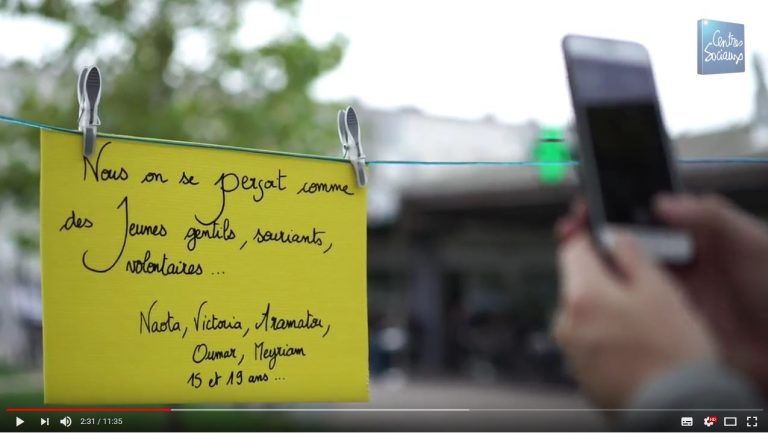 Centres
Sociaux
Nous on se perçoit comme
des Jeunes gentils, souriants,
volontaires ...
Naota, Victoria, Aramatou,
Oumar, Meyriam
15 et 19 ans ...
2:31 / 11:35